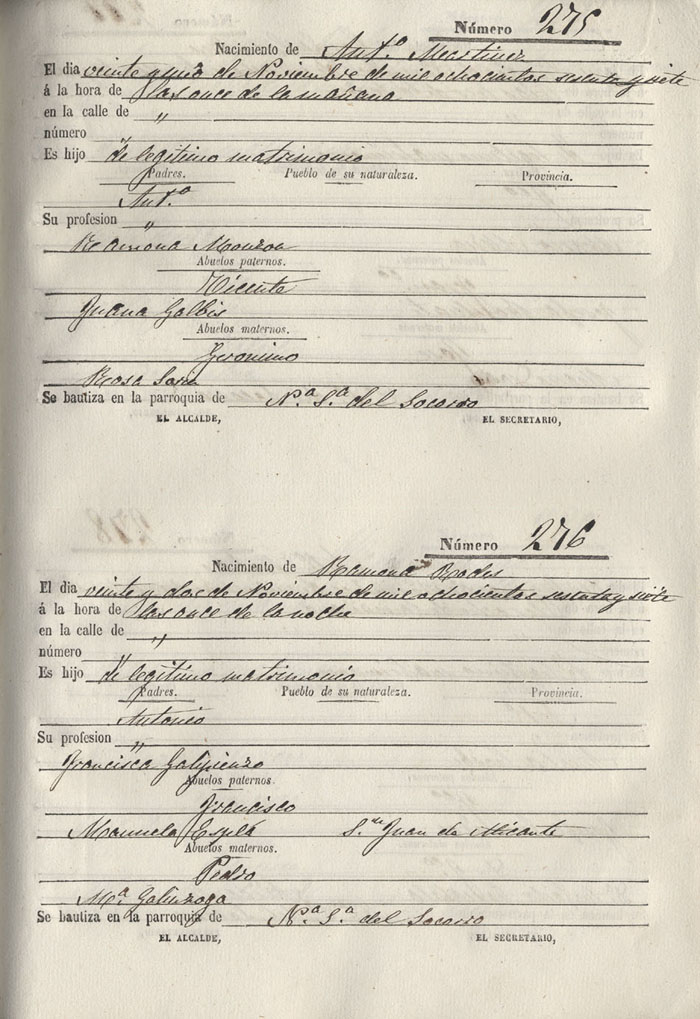 Número 275
Nacimiento de Ant.º Martinez
El dia veinte y uno de Noviembre de mil ochocientos sesenta y siete
á la hora de las once de la mañana
en la calle de „
número „
Es hijo de legítimo matrimonio
Padres. Pueblo de su naturaleza. Provincia.
Ant.º
Su profesion „
Ramona Monzon
Abuelos paternos.
Vicente
Juana Galbis
Abuelos maternos.
Geronimo
Rosa
Se bautiza en la parroquia de N.ª S.ª del Socorro
EL ALCALDE, EL SECRETARIO,
Número 276
Nacimiento de Ramona Rodes
El dia veinte y dos de Noviembre de mil ochocientos sesenta y siete
á la hora de las once de la noche
en la calle de „
número „
Es hijo de legítimo matrimonio
Padres. Pueblo de su naturaleza. Provincia.
Antonio
Su profesion „
Francisca Galipienzo
Abuelos paternos.
Francisco
Manuela Esplá S.n Juan de Alicante
Abuelos maternos.
Pedro
M.ª
Se bautiza en la parroquia de N.ª S.ª del Socorro
EL ALCALDE, EL SECRETARIO,